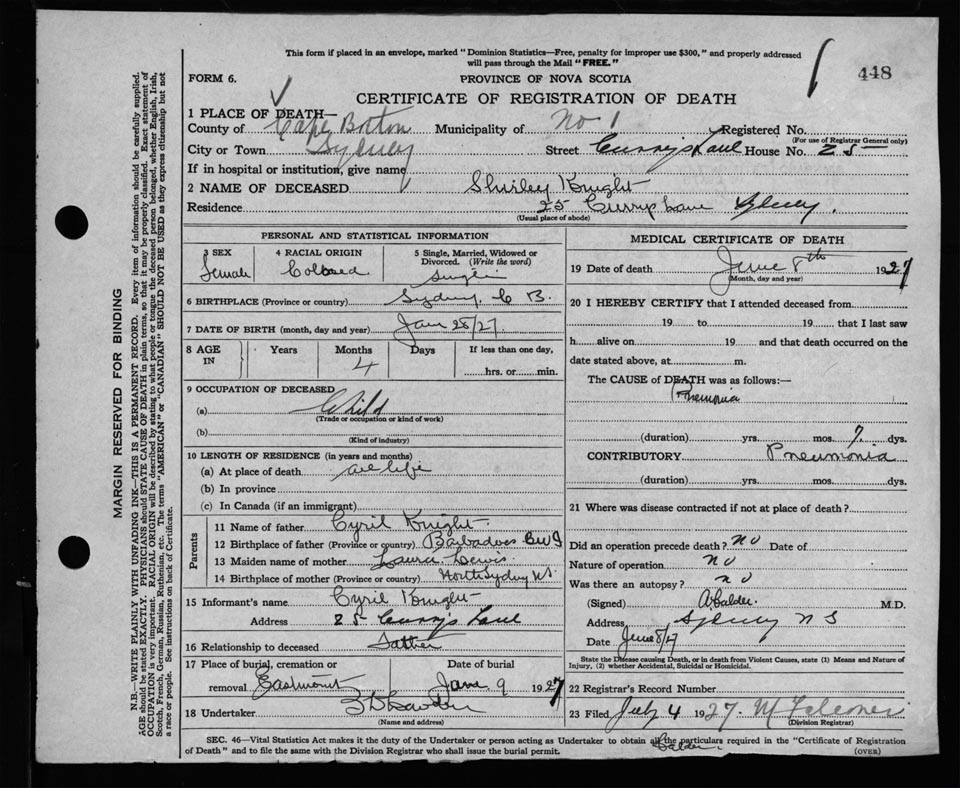 This form if placed in an envelope, marked "Dominion Statistics—Free, penalty for improper use $300," and properly addressed
will pass through the Mail "FREE."
448
FORM 6.
PROVINCE OF NOVA SCOTIA
CERTIFICATE OF REGISTRATION OF DEATH
1 PLACE OF DEATH—
County of Cape Breton Municipality of No 1 Registered No.
(For use of Registrar General only)
City or Town Sydney Street Curry's Lane House No. 25
If in hospital or institution, give name
2 NAME OF DECEASED Shirley Knight
Residence 25 Currys Lane Sydney.
(Usual place of abode)
PERSONAL AND STATISTICAL INFORMATION
3 SEX 4 RACIAL ORIGIN 5 Single, Married, Widowed or
Divorced. (Write the word)
Female Colored Single
6 BIRTHPLACE (Province or country) Sydney, C B.
7 DATE OF BIRTH (month, day and year) Jan 28/27
8 AGE IN Years Months Days If less than one day,
4 hrs. or min.
9 OCCUPATION OF DECEASED
(a) Child
(Trade or occupation or kind of work)
(b)
(Kind of industry)
10 LENGTH OF RESIDENCE (in years and months)
(a) At place of death all life
(b) In province
(c) In Canada (if an immigrant)
Parents
11 Name of father Cyril Knight
12 Birthplace of father (Province or country) Barbadoes BWI
13 Maiden name of mother Laura Lewis
14 Birthplace of mother (Province or country) North Sydney NS.
15 Informant's name Cyril Knight
Address 25 Curry's Lane
16 Relationship to deceased Father
17 Place of burial, cremation or Date of burial
removal Eastmount June 9 1927
18 Undertaker
(Name and address)
MEDICAL CERTIFICATE OF DEATH
19 Date of death June 8th 1927
(Month, day and year)
20 I HEREBY CERTIFY that I attended deceased from
19 to 19 that I last saw
h alive on 19 and that death occurred on the
date stated above, at m.
The CAUSE of DEATH was as follows:—
Pnemonia
(duration) yrs. mos. 7 dys.
CONTRIBUTORY Pneumonia
(duration) yrs. mos. dys.
21 Where was disease contracted if not at place of death?
Did an operation precede death? no Date of
Nature of operation no
Was there an autopsy? no
(Signed) A. Calder. M.D.
Address Sydney N S
Date June 8/27
State the Disease causing Death, or in death from Violent Causes, state (1) Means and Nature of
Injury, (2) whether Accidental, Suicidal or Homicidal.
22 Registrar's Record Number
23 Filed July 4 1927. M Falconer
(Division Registrar)
SEC. 46—Vital Statistics Act makes it duty of the Undertaker or person acting as Undertaker to obtain all the particulars required in the "Certificate of Registration
of Death" and to file the same with the Division Registrar who shall issue the burial permit.
Calder.
(OVER)
MARGIN RESERVED FOR BINDING
N.B.—WRITE PLAINLY WITH UNFADING INK—THIS IS A PERMANENT RECORD. Every item of information should be carefully supplied.
AGE should be stated EXACTLY. PHYSICIANS should STATE CAUSE OF DEATH in plain terms, so that it may be properly classified. Exact statement of
OCCUPATION is very important. RACIAL ORIGIN will be described by stating to what people or tongue the deceased person belonged, whether English, Irish,
Scotch, French, German, Russian, Ruthenian, etc. The terms "AMERICAN" or "CANADIAN" SHOULD NOT BE USED as they express citizenship but not
a race or people. See instructions on back of Certificate.